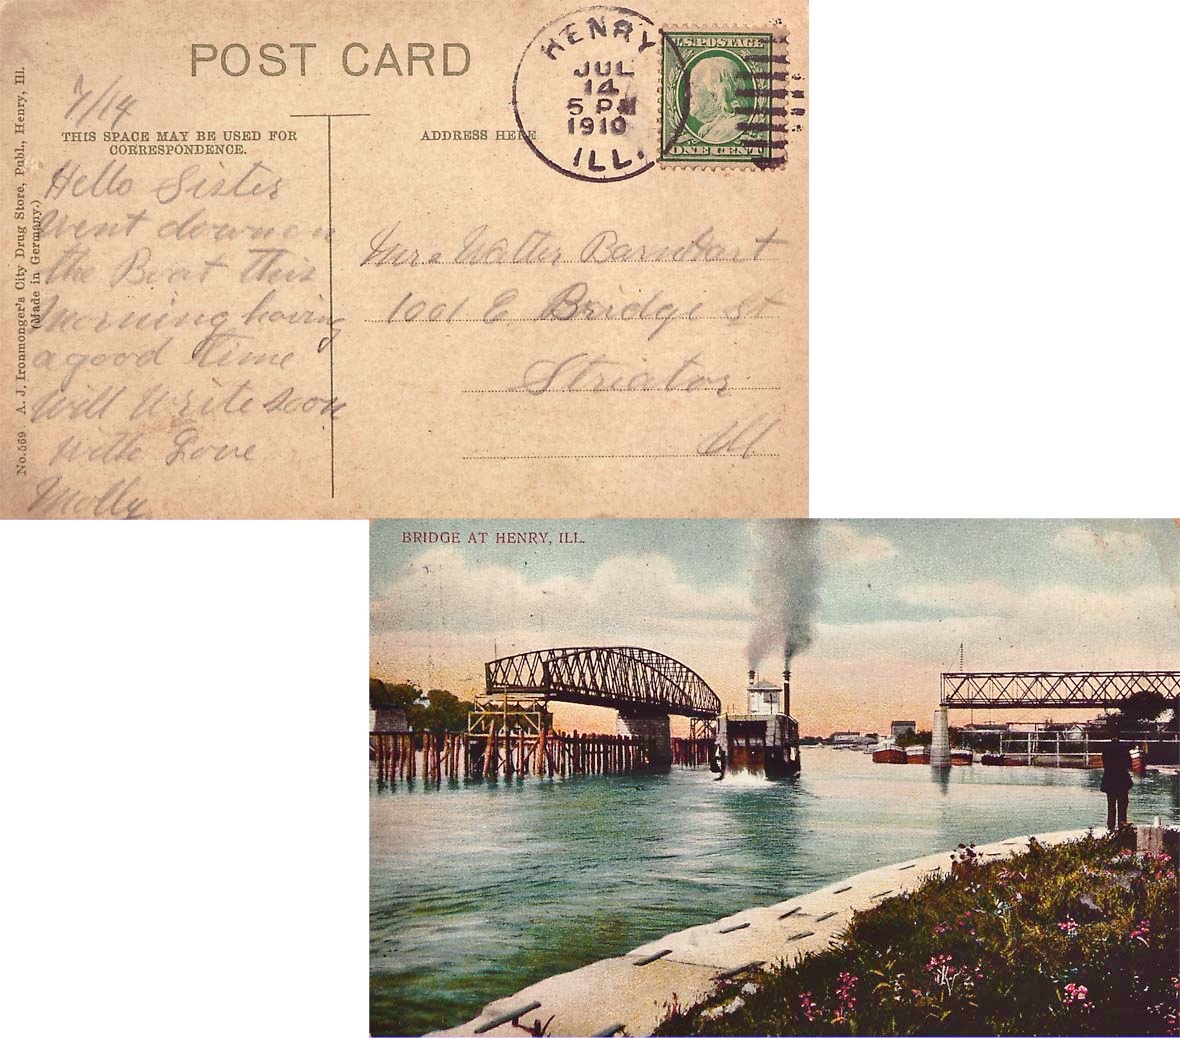 POST CARD
7/14
THIS SPACE MAY BE USED FOR
CORRESPONDENCE.
ADDRESS HERE
HENRY
JUL
14
5 PM
1910
ILL.
U.S. POSTAGE
ONE CENT
No. 569 A. J. Ironmonger's City Drug Store, Publ., Henry, Ill.
(Made in Germany.)
Hello Sister
Went down on
the Boat this
Morning having
a good time
Will Write soon
with Love
Molly
Mrs Walter Barnhart
1001 E Bridge St
Striator
Ill
BRIDGE AT HENRY, ILL.